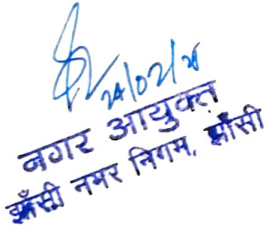 24/02/25
नगर आयुक्त
झाँसी नगर निगम, झाँसी